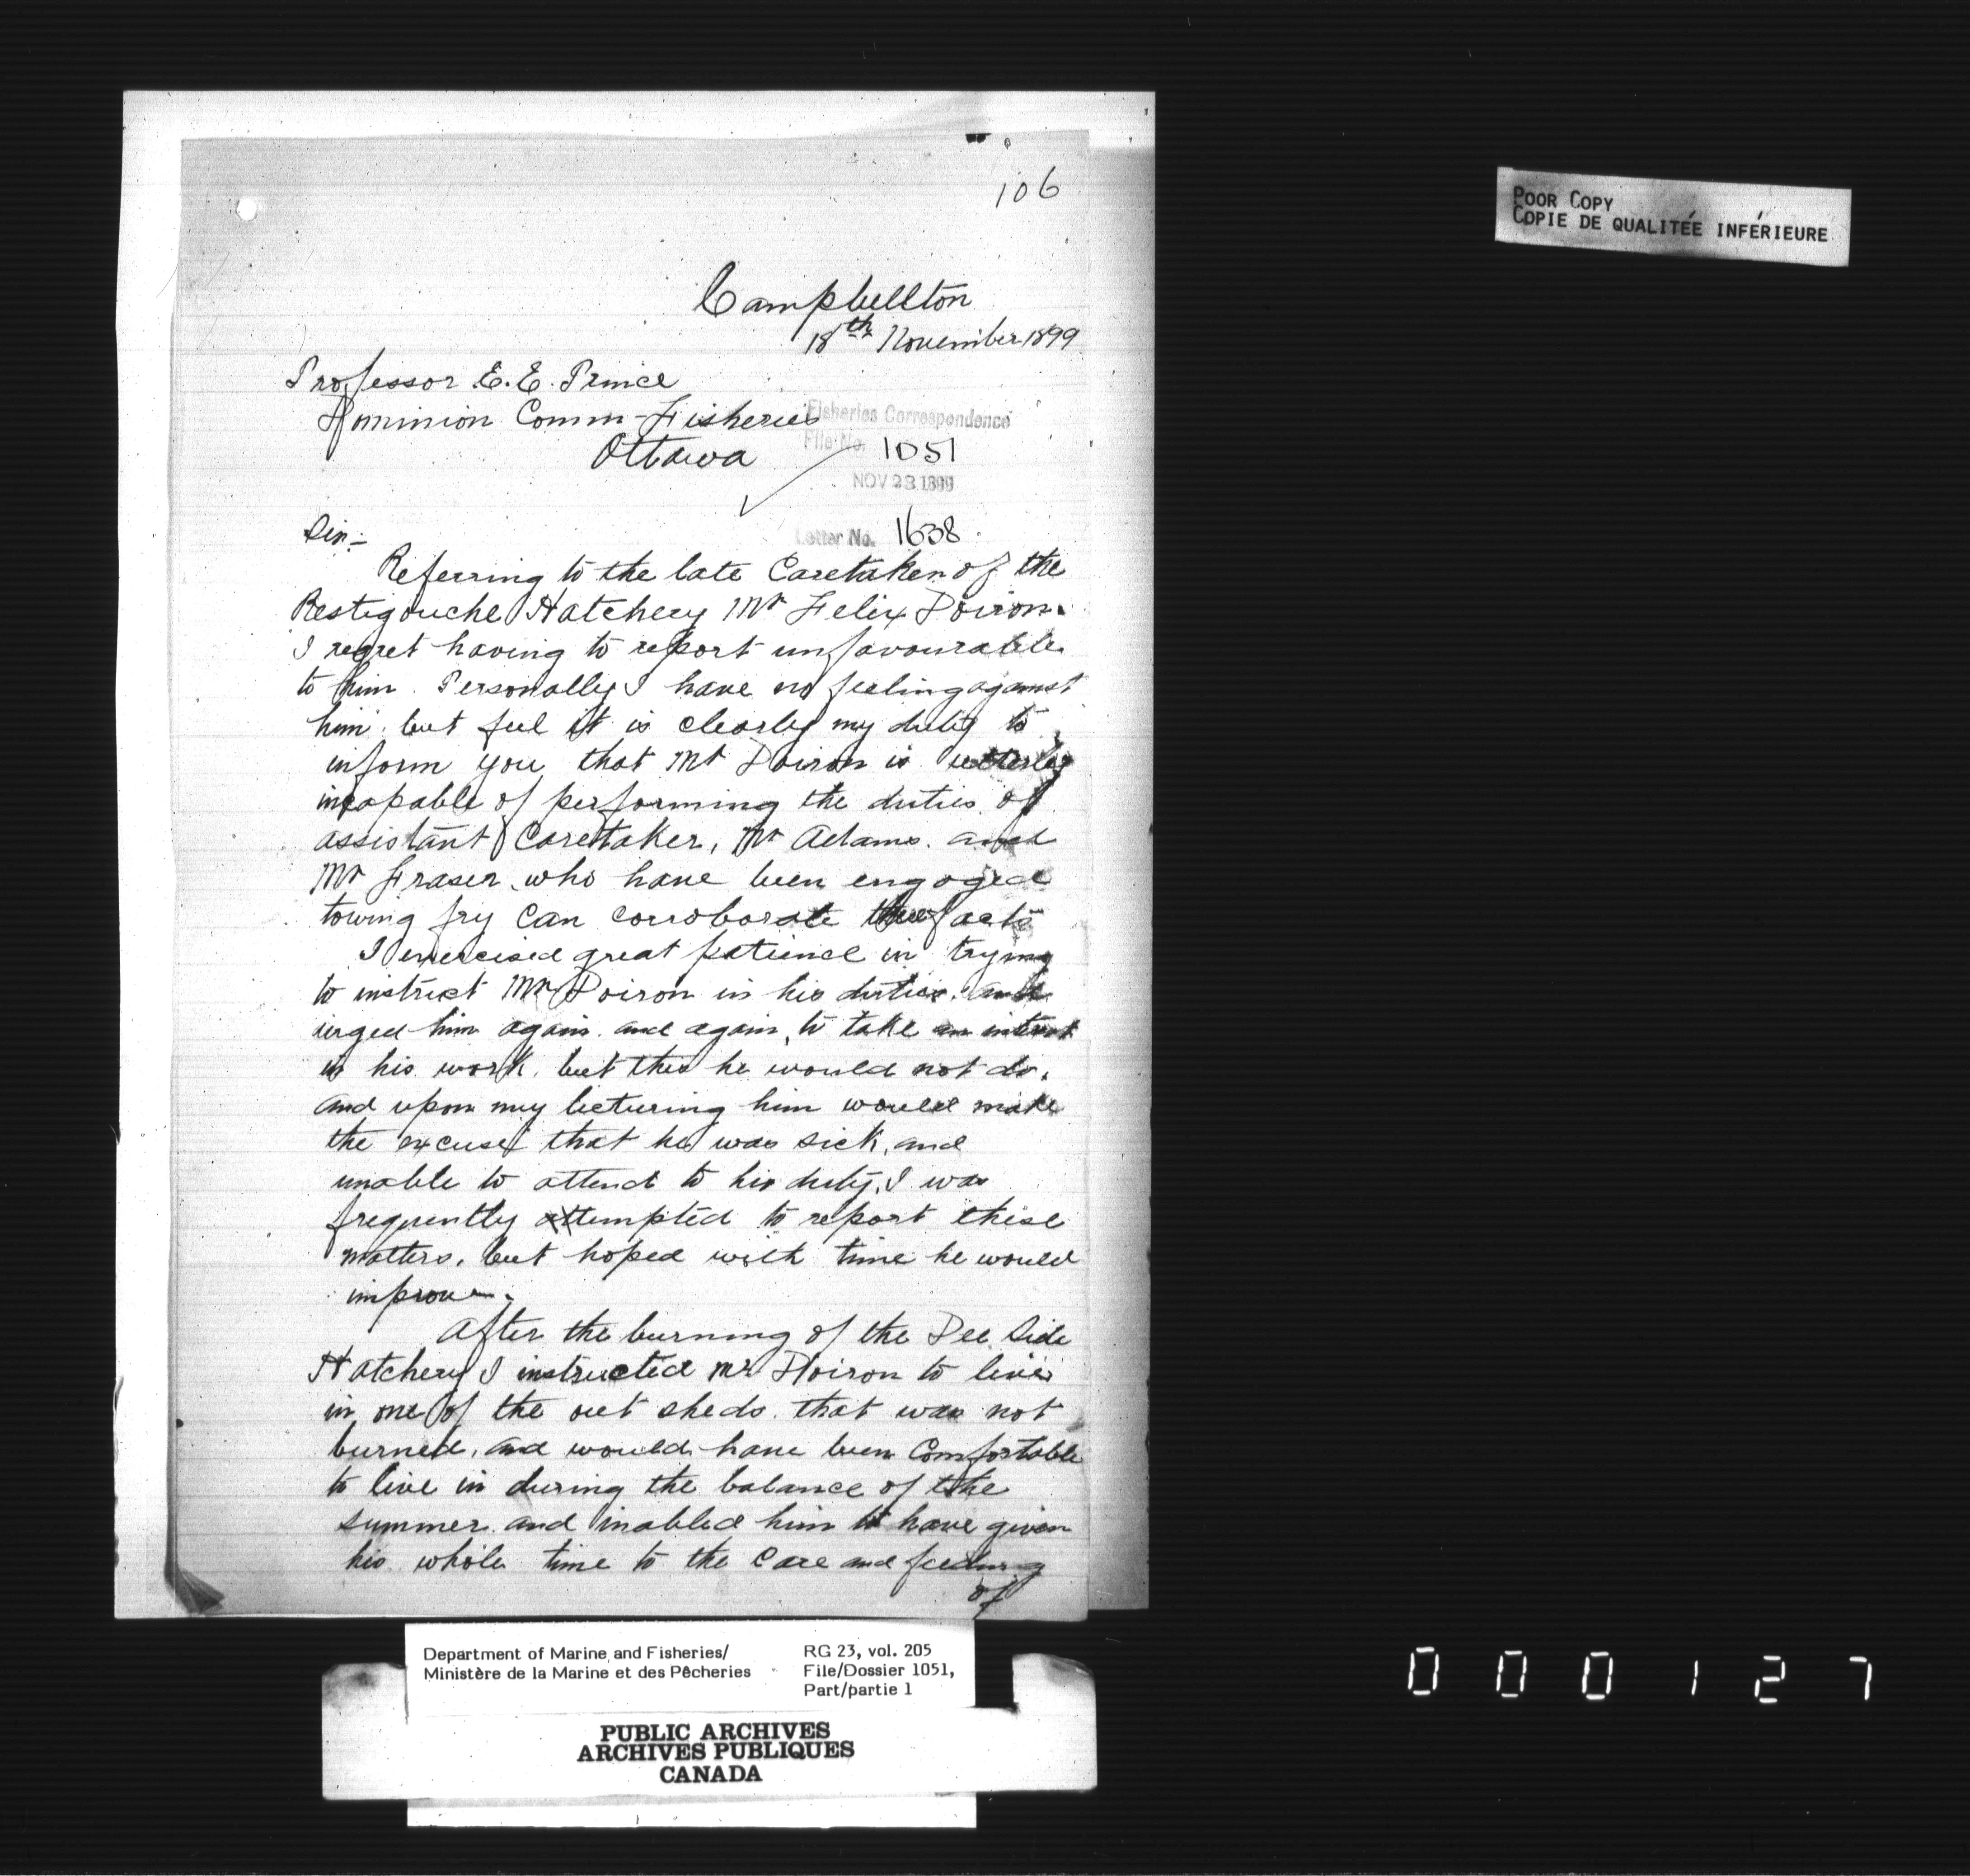 106
POOR COPY
COPIE DE QUALITÉE INFÉRIEURE
Campbellton
18th November 1899
Professor E. E. Prince
Dominion Comm - Fisheries
Ottawa
Fisheries Correspondence
File No. 1051
NOV 23 1899
Letter No. 1638
Sir:-
Referring to the late Caretaker of the
Restigouche Hatchery Mr Felix Poiron.
I regret having to report unfavourable
to him. Personally I have no feeling against
him, but feel it is clearly my duty to
inform you that Mr Poiron is utterly
incapable of performing the duties of
assistant Caretaker, Mr Adams. and
Mr Fraser, who have been engaged
towing fry Can corroborate these facts
I exercised great patience in trying
to instruct Mr Poiron in his duties. and
urged him again and again, to take an interest
in his work, but this he would not do,
and upon my lecturing him would make
the excuse that he was sick, and
unable to attend to his duty, I was
frequently attempted to report these
matters, but hoped with time he would
improve.
After the burning of the Dee Side
Hatchery I instructed Mr Poiron to live
in one of the out sheds that was not
burned, and would have been Comfortable
to live in during the balance of the
summer and inabled him to have given
his whole time to the Care and feeding
of
Department of Marine and Fisheries/
Ministère de la Marine et des Pêcheries
RG 23, vol. 205
File/Dossier 1051,
Part/partie 1
PUBLIC ARCHIVES
ARCHIVES PUBLIQUES
CANADA
000127